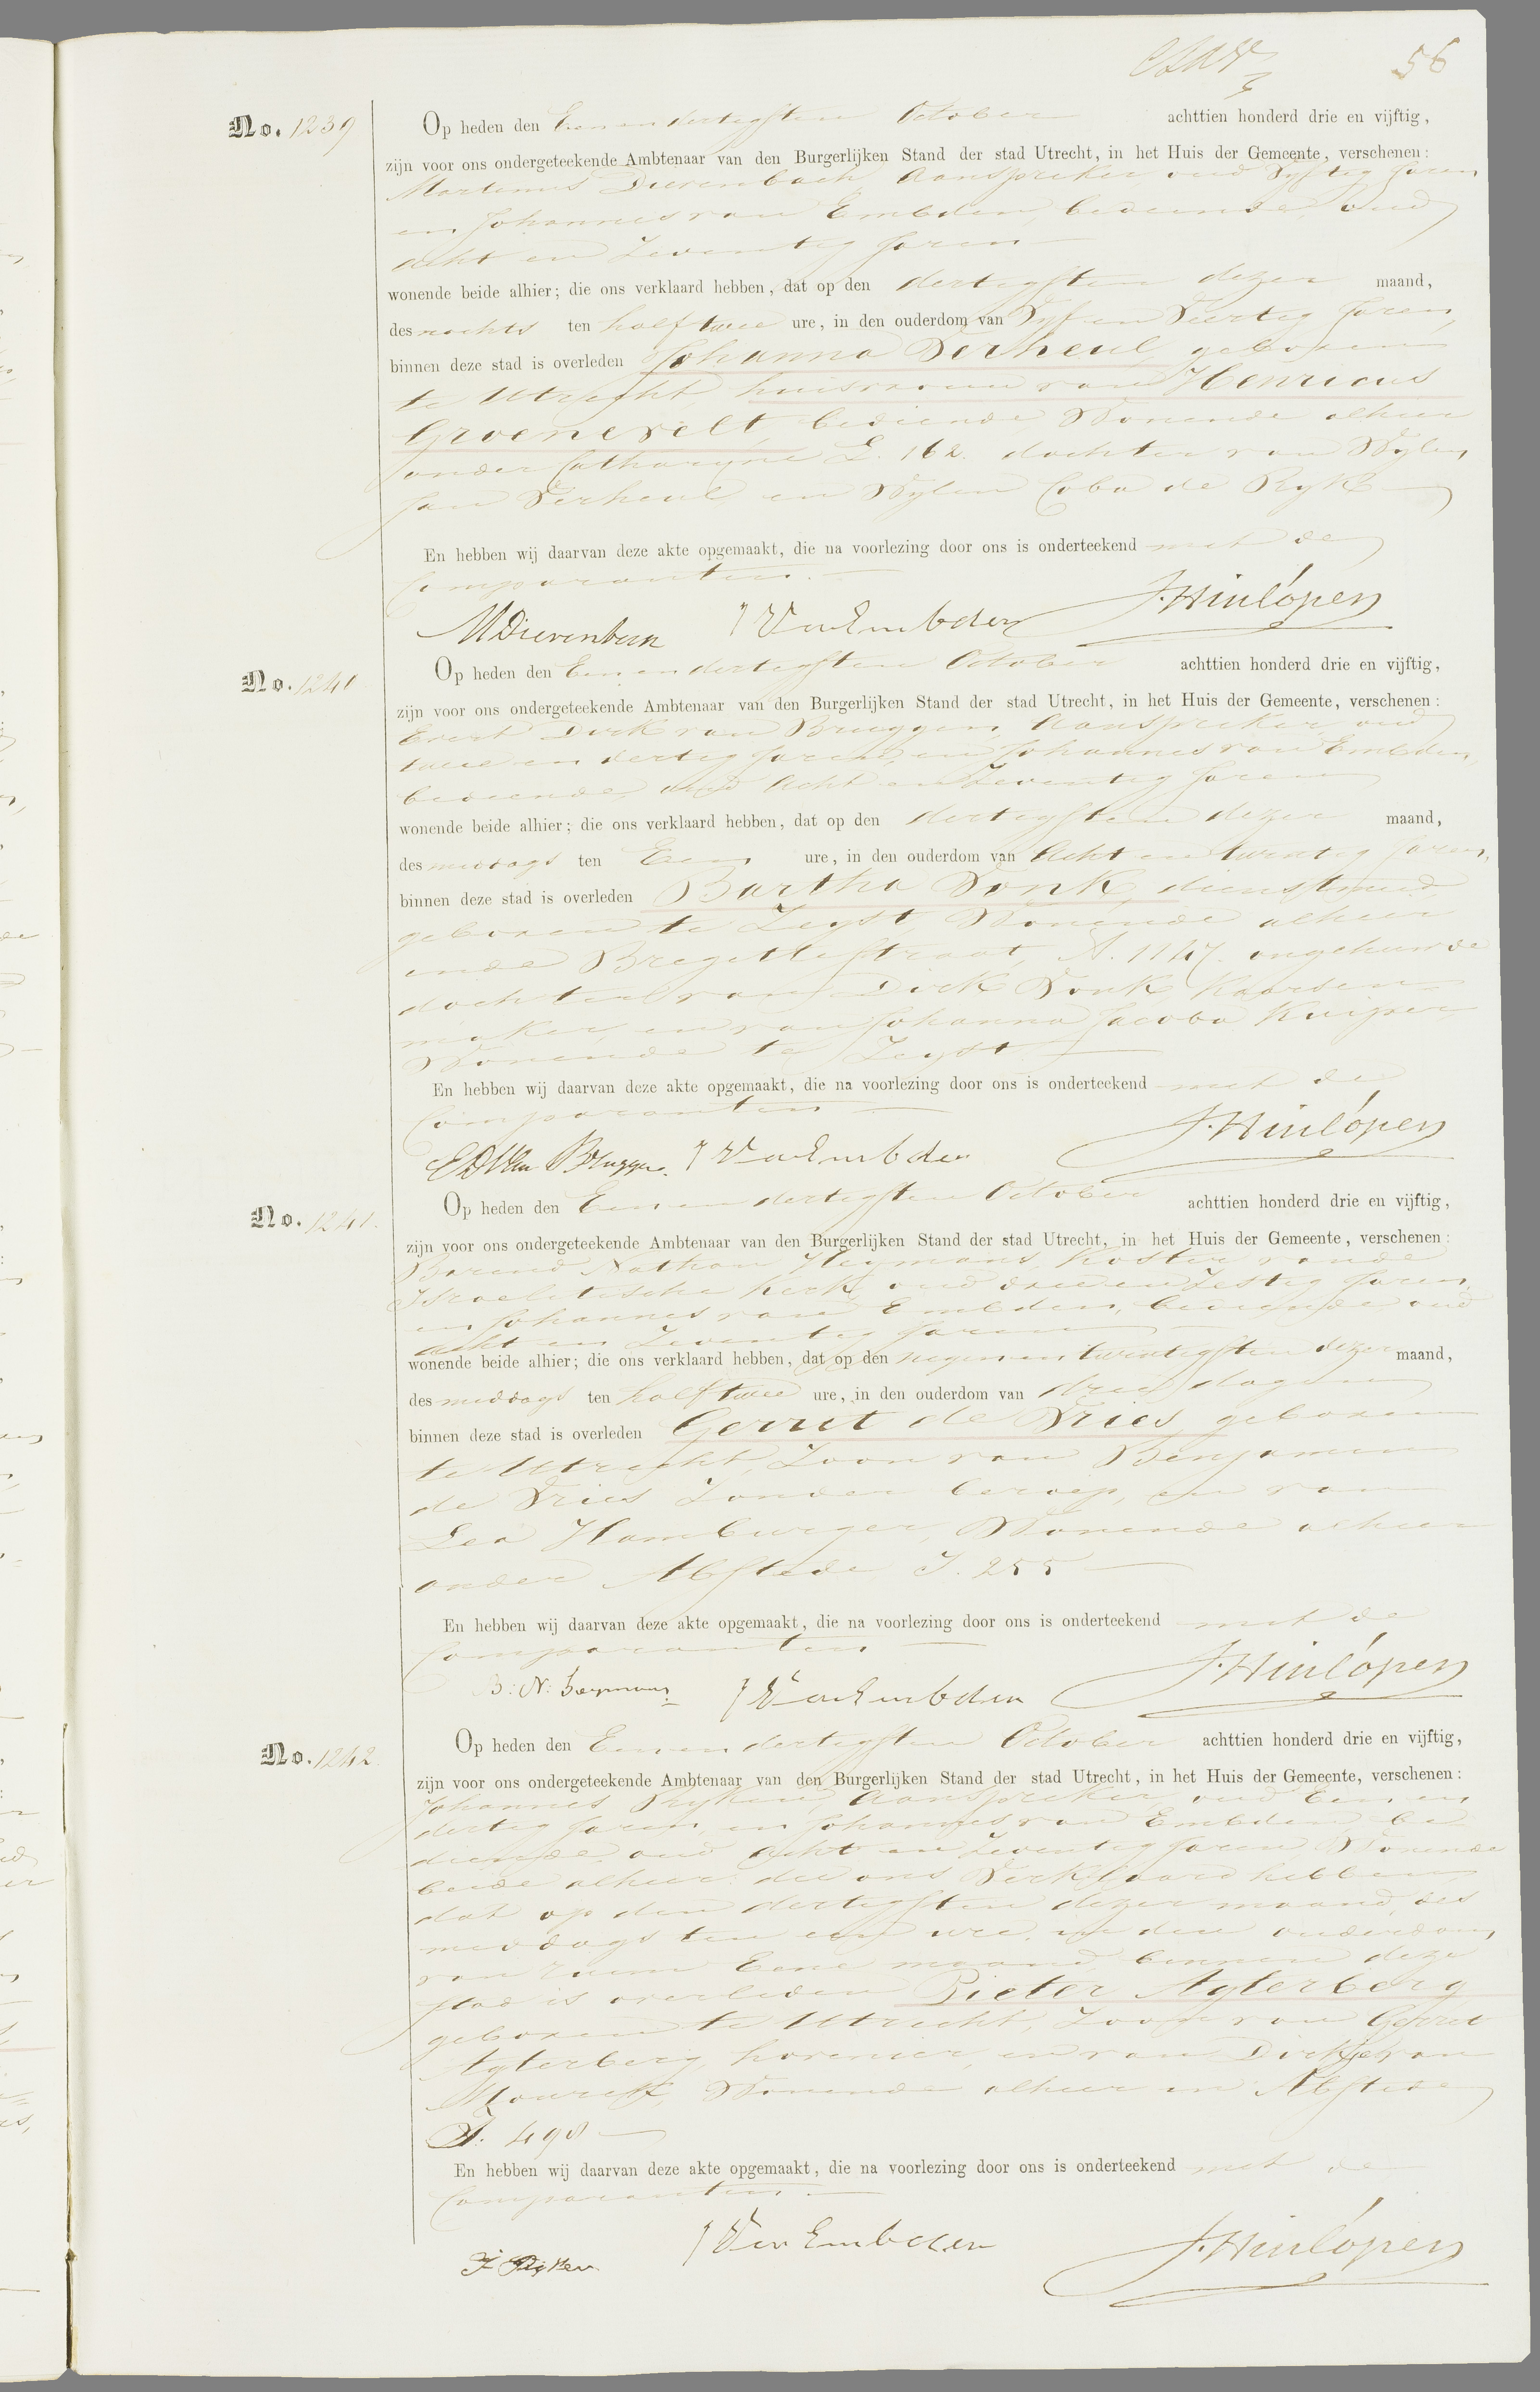 56
No. 1239
Op heden den Eenendertigsten October achttien honderd drie en vijftig,
zijn voor ons ondergeteekende Ambtenaar van den Burgerlijken Stand der stad Utrecht, in het Huis der Gemeente, verschenen:
Martinus Dierenbach, Aanspreker oud Vyftig Jaren
en Johannes van Embden, bediende, oud
acht en Zeventig Jaren
wonende beide alhier; die ons verklaard hebben, dat op den dertigsten dezer maand,
des nachts ten half twee ure, in den ouderdom van Vyf en Veertig Jaren,
binnen deze stad is overleden Johanna Verheul, geboren
te Utrecht, huisvrouw van Henricus
Groenevelt, bediende, Wonende alhier
onder Catharyne L. 162. dochter van Wylen
Jan Verheul, en Wylen Coba de Ryk
En hebben wij daarvan deze akte opgemaakt, die na voorlezing door ons is onderteekend met de
Comparanten.
MDierenbach J Van Embden J. Hinlópen
No. 1240
Op heden den Eenendertigsten October achttien honderd drie en vijftig,
zijn voor ons ondergeteekende Ambtenaar van den Burgerlijken Stand der stad Utrecht, in het Huis der Gemeente, verschenen:
Evert Dirk van Bruggen, Aanspreker, oud
twee en dertig Jaren, en Johannes van Embden,
bediende, oud Acht en Zeventig Jaren
wonende beide alhier; die ons verklaard hebben, dat op den dertigsten dezer maand,
des middags ten Een ure, in den ouderdom van Acht en twintig Jaren,
binnen deze stad is overleden Bartha Vonk, dienstmeid
geboren te Zeyst, Wonende alhier
inde Bregittestraat, A. 1147. ongehuwde
dochter van Dirk Vonk, kaarsen-
maker, en van Johanna Jacoba Kuiper
Wonende te Zeyst
En hebben wij daarvan deze akte opgemaakt, die na voorlezing door ons is onderteekend met de
Comparanten
EDVan Bruggen. J Van Embden J. Hinlópen
No. 1241.
Op heden den Eenendertigsten October achttien honderd drie en vijftig,
zijn voor ons ondergeteekende Ambtenaar van den Burgerlijken Stand der stad Utrecht, in het Huis der Gemeente, verschenen:
Barend Nathan Heymans, Koster van de
Israelitische Kerk, oud drie en Zestig Jaren,
en Johannes van Embden, bediende oud
acht en Zeventig Jaren
wonende beide alhier; die ons verklaard hebben, dat op den negenentwintigsten dezer maand,
des middags ten half twee ure, in den ouderdom van drie dagen
binnen deze stad is overleden Gerrit de Vries geboren
te Utrecht, Zoon van Benjamin
de Vries Zonder beroep, en van
Lea Hamburger, Wonende alhier
onder Abstede J. 255
En hebben wij daarvan deze akte opgemaakt, die na voorlezing door ons is onderteekend met de
Comparanten
B: N: Heymans J Van Embden J. Hinlópen
No. 1242
Op heden den Eenendertigsten October achttien honderd drie en vijftig,
zijn voor ons ondergeteekende Ambtenaar van den Burgerlijken Stand der stad Utrecht, in het Huis der Gemeente, verschenen:
Johannes Ryken, Aanspreker, oud Een en
dertig Jaren, en Johannes van Embden, be
diende oud Acht en Zeventig Jaren Wonende
beide alhier die ons Verklaard hebben
dat op den dertigsten dezer maand, des
middags ten een ure, in den ouderdom
van ruim Eene maand, binnen deze
stad is overleden Pieter Agterberg
geboren te Utrecht, Zoon van Gerrit
Agterberg, hovenier, en van Dirkje van
Mourik, Wonende alhier in Abstede
J. 498
En hebben wij daarvan deze akte opgemaakt, die na voorlezing door ons is onderteekend met de
Comparanten.
J Ryken J Van Embden J. Hinlópen